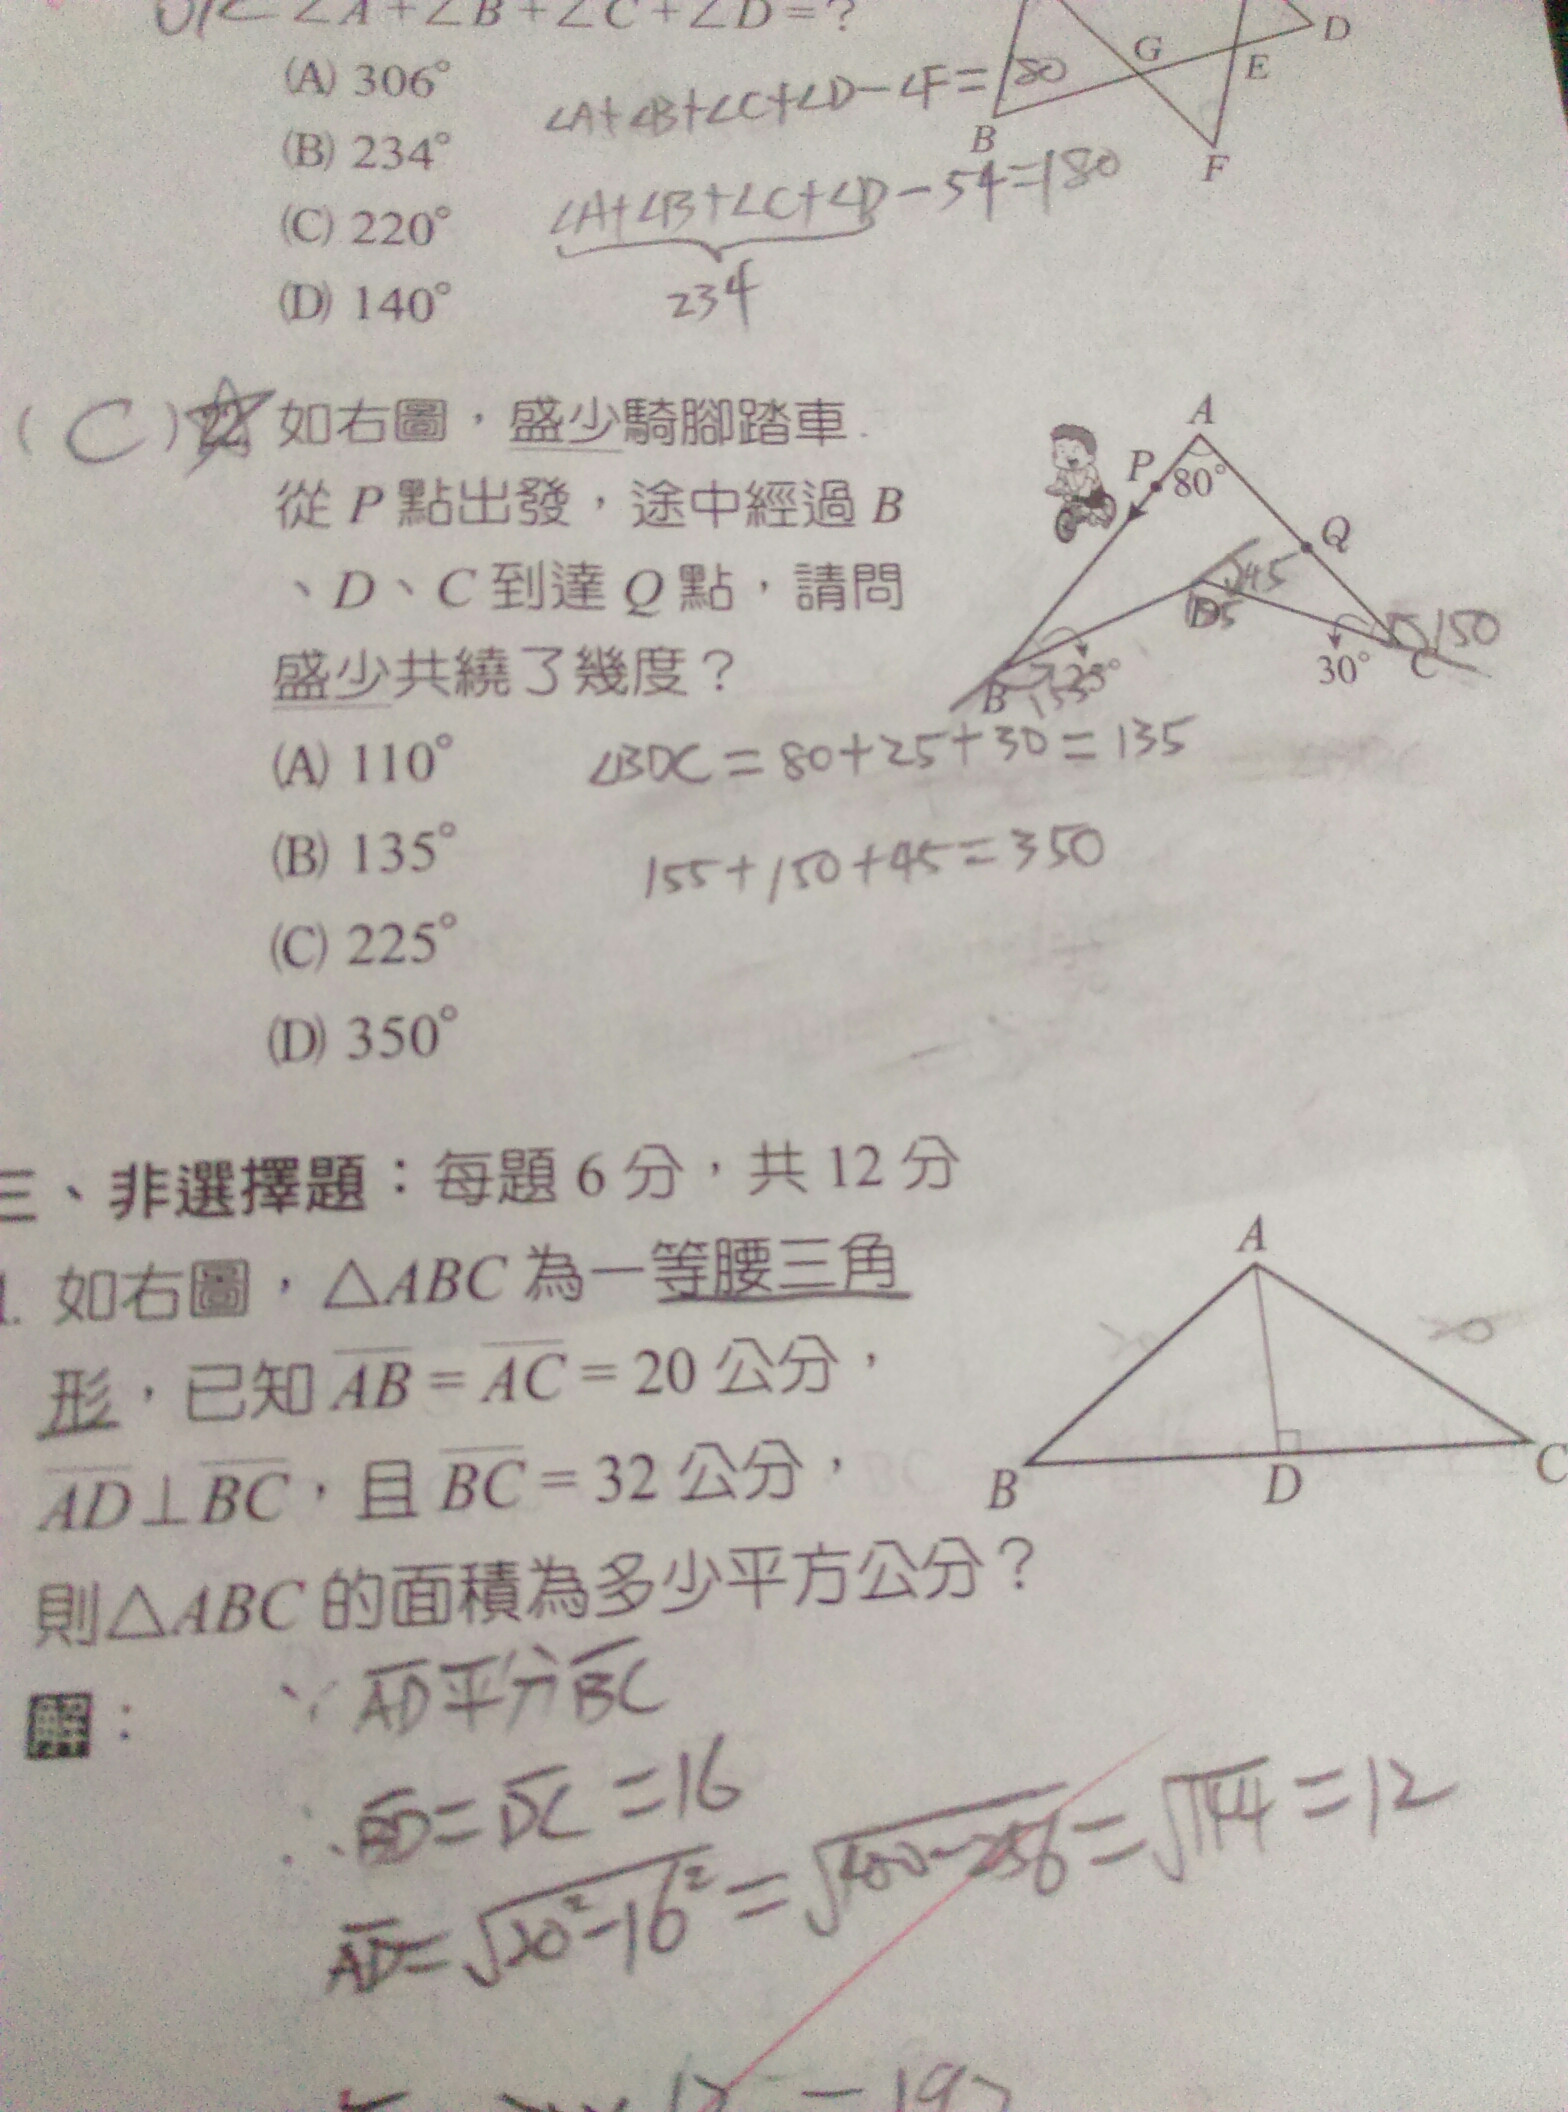 ∠A+∠B+∠C+∠D=?
(A) 306°
(B) 234°
(C) 220°
(D) 140°
∠A+∠B+∠C+∠D-∠F=180
∠A+∠B+∠C+∠D-54=180
234
G
D
E
B
F
(C)
如右圖，盛少騎腳踏車
從P點出發，途中經過B
、D、C到達Q點，請問
盛少共繞了幾度？
(A) 110°
(B) 135°
(C) 225°
(D) 350°
A
P
80°
Q
45
D
135
150
B
155
25°
30°
C
∠BDC=80+25+30=135
155+150+45=350
三、非選擇題：每題6分，共12分
1. 如右圖，△ABC為一等腰三角
形，已知AB=AC=20公分，
AD⊥BC，且BC=32公分，
則△ABC的面積為多少平方公分？
A
20
B
D
C
解：
∵AD平分BC
∴BD=DC=16
AD=√20²-16²=√400-256=√144=12